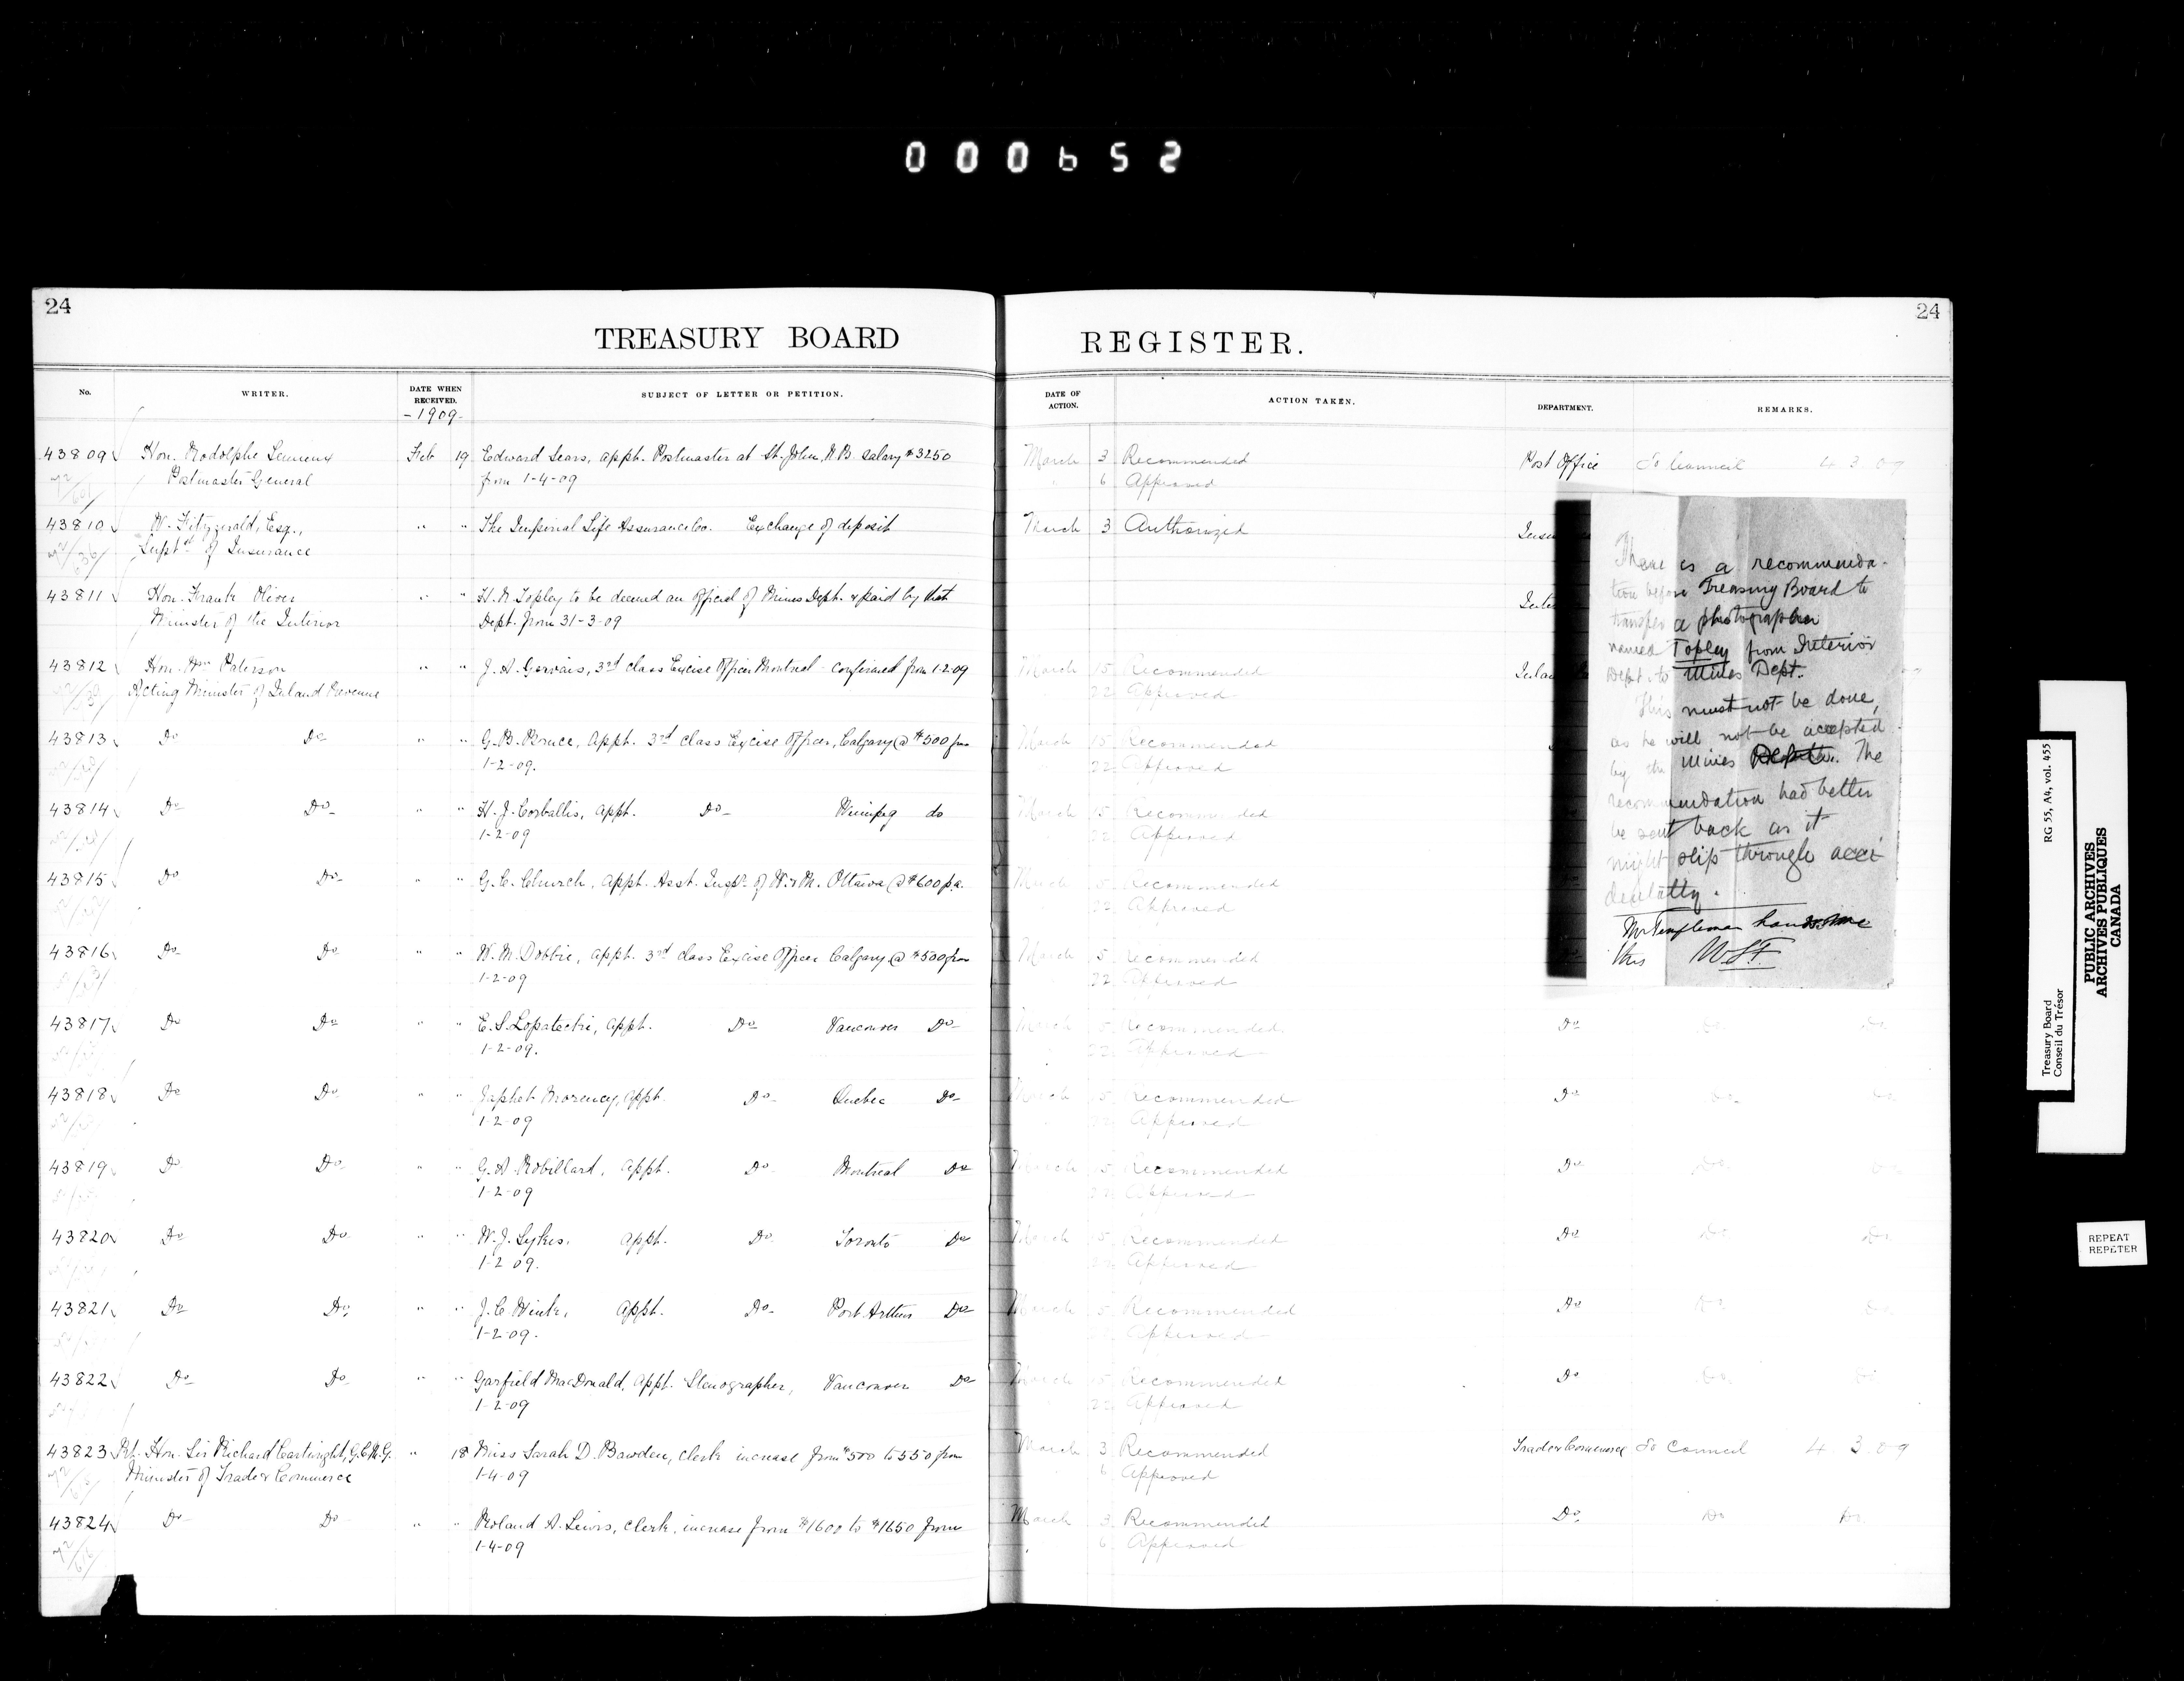 000652
24
24
TREASURY BOARD REGISTER.
No. WRITER. DATE WHEN RECEIVED. SUBJECT OF LETTER OR PETITION. DATE OF ACTION. ACTION TAKEN. DEPARTMENT. REMARKS.
-1909-
43809 Hon. Rodolphe Lemieux Feb 19 Edward Sears, appt. Postmaster at St. John, N.B. salary $3250 March 3 Recommended Post Office To Council 4 3 09
Postmaster General from 1-4-09 " 6 Approved
43810 W. Fitzgerald, Esq., " " The Imperial Life Assurance Co. Exchange of deposit March 3 Authorized
Supt of Insurance
43811 Hon. Frank Oliver " " H.N. Topley to be deemed an official of Mines Dept. & paid by that
Minister of the Interior Dept. from 31-3-09
43812 Hon. Wm Paterson " " J.A. Gervais, 3rd class Excise Officer Montreal - confirmed from 1-2-09 March 15 Recommended
Acting Minister of Inland Revenue 22 Approved
43813 Do Do " " G.B. Bruce, Appt. 3rd class Excise Officer, Calgary @ $500 from March 15 Recommended
1-2-09. 22 Approved
43814 Do Do " " H.J. Corballis, appt. Do Winnipeg do March 15 Recommended
1-2-09 22 Approved
43815 Do Do " " G.C. Church, appt. Asst. Inspr. of W.&M. Ottawa @ $600 p.a. March 15 Recommended
22 Approved
43816 Do Do " " W.M. Dobbie, appt. 3rd class Excise Officer Calgary @ $500 from March 15 Recommended
1-2-09 22 Approved
43817 Do Do " " E.S. Lopatecki, appt. Do Vancouver Do March 15 Recommended Do Do Do
1-2-09. 22 Approved
43818 Do Do " " Japhet Morency, appt. Do Quebec Do March 15 Recommended Do Do Do
1-2-09 22 Approved
43819 Do Do " " G.A. Robillard, appt. Do Montreal Do March 15 Recommended Do Do Do
1-2-09 22 Approved
43820 Do Do " " W.J. Sykes, appt. Do Toronto Do March 15 Recommended Do Do Do
1-2 09. 22 Approved
43821 Do Do " " J.C. Wink, appt. Do Port Arthur Do March 15 Recommended Do Do Do
1-2-09. 22 Approved
43822 Do Do " " Garfield MacDonald, appt. Stenographer, Vancouver Do March 15 Recommended Do Do Do
1-2-09 22 Approved
43823 Rt. Hon. Sir Richard Cartwright, G.C.M.G. " 18 Miss Sarah D. Bawden, clerk increase from $500 to 550 from March 3 Recommended Trade & Commerce To Council 4 3 09
Minister of Trade & Commerce 1-4-09 6 Approved
43824 Do Do " " Roland A. Lewis, clerk, increase from $1600 to $1650 from March 3 Recommended Do Do Do
1-4-09 6 Approved
There is a recommenda-
tion before Treasury Board to
transfer a photographer
named Topley from Interior
Dept. to Mines Dept.
This must not be done,
as he will not be accepted
by the Mines Dept. The
recommendation had better
be sent back as it
might slip through acci-
dentally.
Mr Templeman hands me
this
Treasury Board RG 55, A4, vol. 455
Conseil du Trésor
PUBLIC ARCHIVES
ARCHIVES PUBLIQUES
CANADA
REPEAT
REPETER